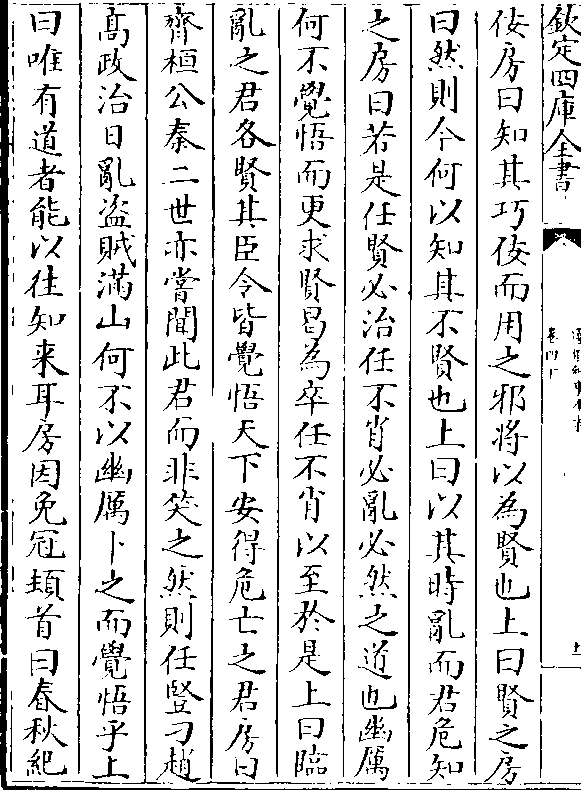 欽定四庫全書
佞房曰知其巧佞而用之邪將以為賢也上曰賢之房
曰然則今何以知其不賢也上曰以其時亂而君危知
之房曰若是任賢必治任不肖必亂必然之道也幽厲
何不覺悟而更求賢曷為卒任不肖以至於是上曰臨
亂之君各賢其臣令皆覺悟天下安得危亡之君房曰
齊桓公秦二世亦嘗聞此君而非笑之然則任豎刁趙
髙政治日亂盜賊滿山何不以幽厲卜之而覺悟乎上
曰唯有道者能以往知来耳房因免冠頓首曰春秋紀